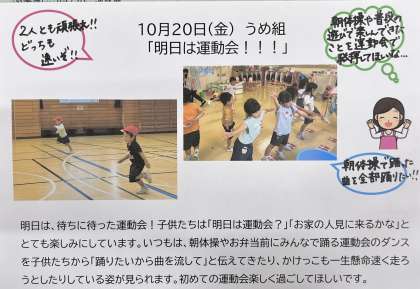 10月20日(金) うめ組
「明日は運動会！！！」
2人とも頑張れ!!
どっちも
速いぞ!!
朝体操や普段の
遊びで楽しんできた
ことを運動会で
発揮してほしいな…
朝体操で踊った
曲を全部踊りたい!!
明日は、待ちに待った運動会！子供たちは「明日は運動会？」「お家の人見に来るかな」と
とても楽しみにしています。いつも は、朝体操やお弁当前にみんなで踊る運動会のダンス
を子供たちから「踊りたいから曲を流して」と伝えてきたり、かけっこも一生懸命速く走ろ
うとしたりしている姿が見られます。初めての運動会楽しく過ごしてほしいです。